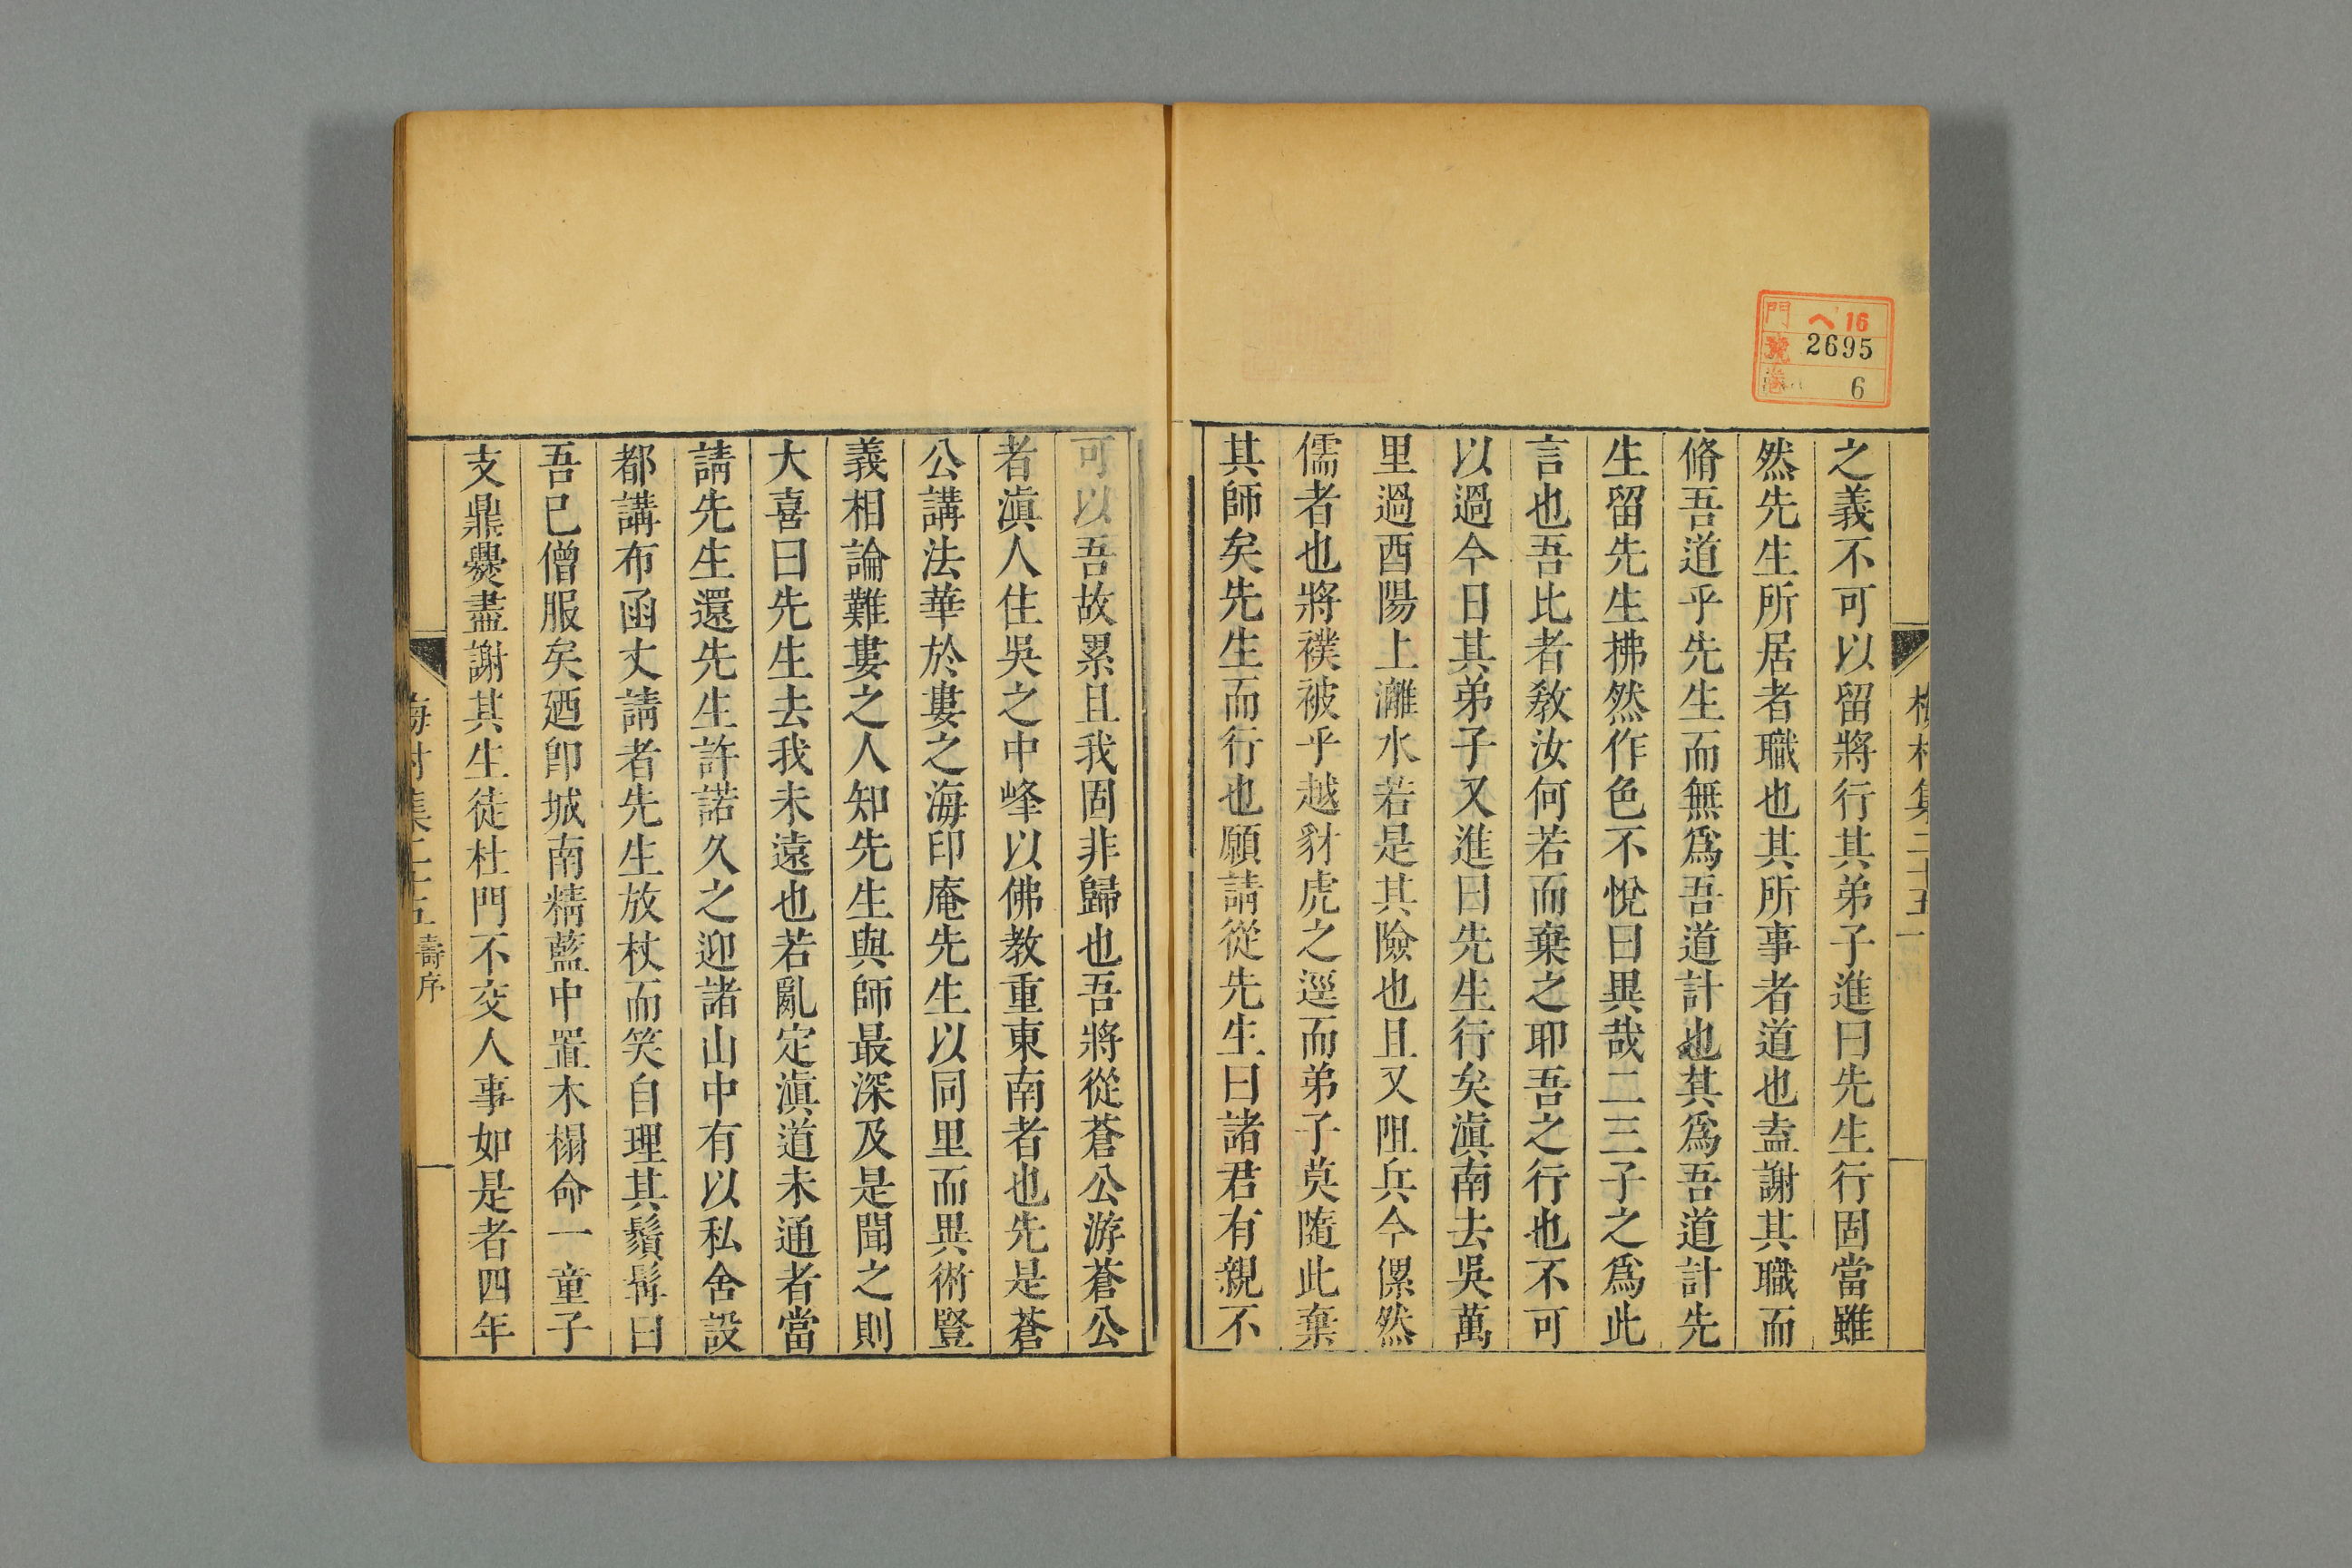 門 ヘ16
號 2695
卷 6
梅村集二十五 一
之義不可以留將行其弟子進曰先生行固當雖
然先生所居者職也其所事者道也盍謝其職而
脩吾道乎先生而無爲吾道計也其爲吾道計先
生留先生拂然作色不悅曰異哉二三子之爲此
言也吾比者敎汝何若而棄之耶吾之行也不可
以過今日其弟子又進曰先生行矣滇南去吳萬
里過酉陽上灕水若是其險也且又阻兵今傫然
儒者也將襆被乎越豺虎之逕而弟子莫隨此棄
其師矣先生而行也願請從先生曰諸君有親不
可以吾故累且我固非歸也吾將從蒼公游蒼公
者滇人住吳之中峰以佛教重東南者也先是蒼
公講法華於婁之海印庵先生以同里而異術豎
義相論難婁之人知先生與師最深及是聞之則
大喜曰先生去我未遠也若亂定滇道未通者當
請先生還先生許諾久之迎諸山中有以私舍設
都講布函丈請者先生放杖而笑自理其鬚髯曰
吾已僧服矣廼卽城南精藍中置木榻命一童子
支鼎爨盡謝其生徒杜門不交人事如是者四年
梅村集二十五 壽序